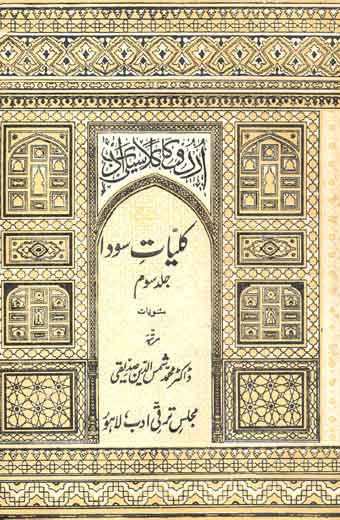 اردو کا کلاسیکی ادب
کلیاتِ سودا
جلد سوم
مثنویات
مرتبہ
ڈاکٹر محمد شمس الدین صدیقی
مجلس ترقی ادب، لاہور